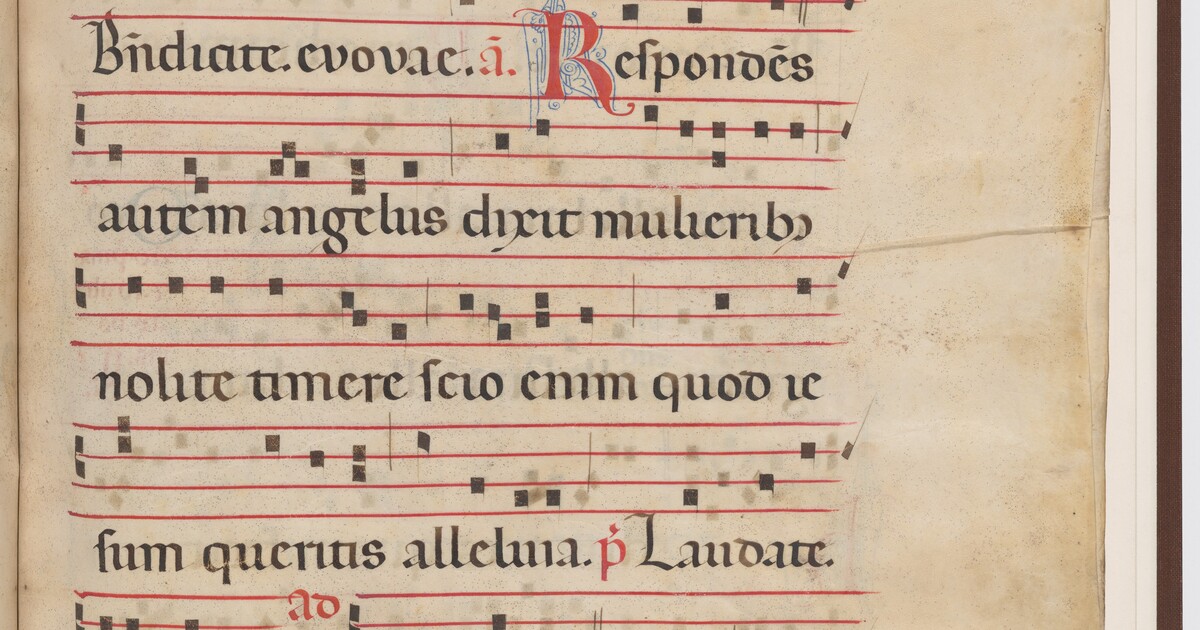 Bn̄dicite. evovae. ā. Respondēs
autem angelus dixit mulieribꝫ
nolite timere scio enim quod ie
sum queritis alleluia. p̄ Laudate.
ad